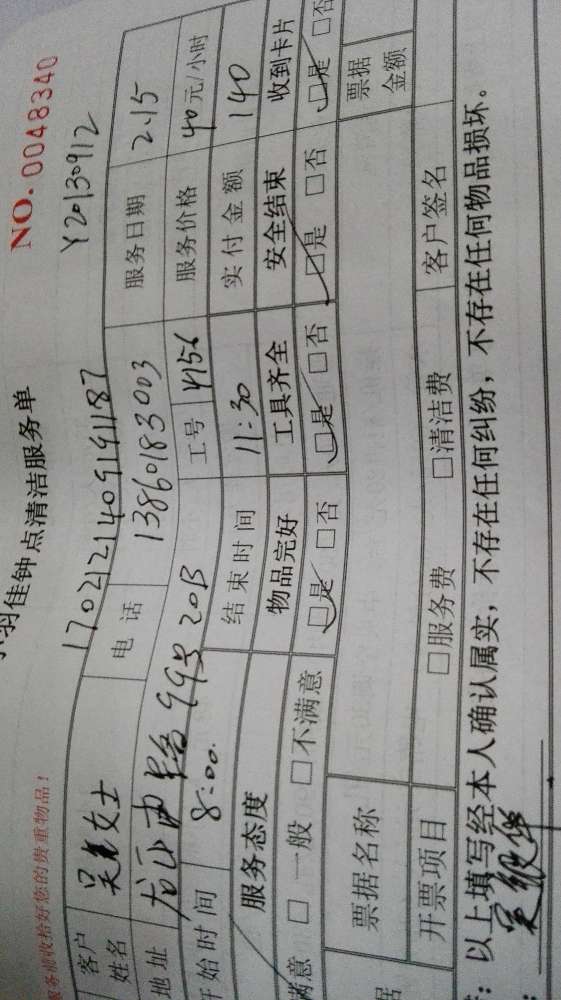 NO.0048340
羽佳钟点清洁服务单
服务前收拾好您的贵重物品!
1702121409191187 Y20130912
客户姓名 吴 女士 电话 13860183003 服务日期 2.15
地址 龙山中路99号20B 工号 4156 服务价格 40元/小时
开始时间 8:00 结束时间 11:30 实付金额 140
服务态度 物品完好 工具齐全 安全结束 收到卡片
满意 □一般 □不满意 □是 □否 □是 □否 □是 □否 □是 □否
票据名称 票据金额
开票项目 □服务费 □清洁费 客户签名
以上填写经本人确认属实,不存在任何纠纷,不存在任何物品损坏。